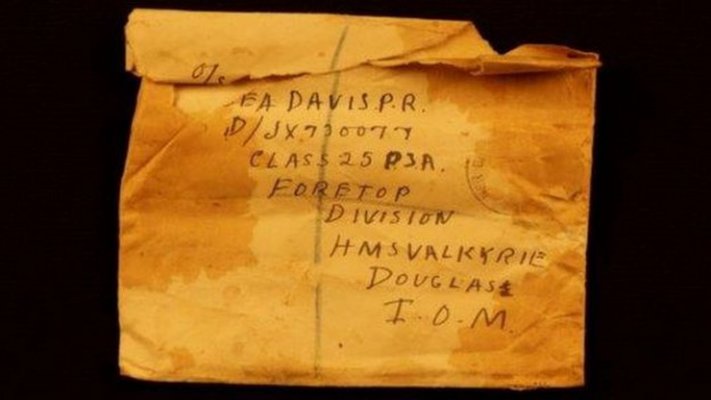 O/s
EA DAVIS P.R.
D/JX730077
CLASS 25 P3A.
FORETOP
DIVISION
HMS VALKYRIE
DOUGLAS
I.O.M.